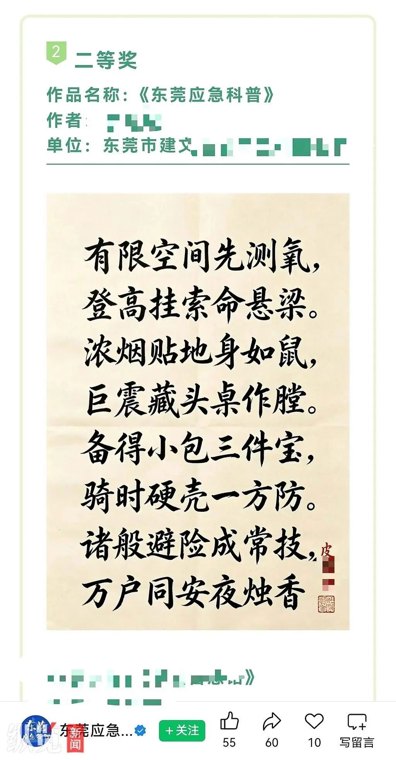 2
二等奖
作品名称：《东莞应急科普》
作者：
单位：东莞市建文
有限空间先测氧，
登高挂索命悬梁。
浓烟贴地身如鼠，
巨震藏头桌作膛。
备得小包三件宝，
骑时硬壳一方防。
诸般避险成常技，
万户同安夜烛香
皮
》
东莞应急...
+关注
55
60
10
写留言
新闻